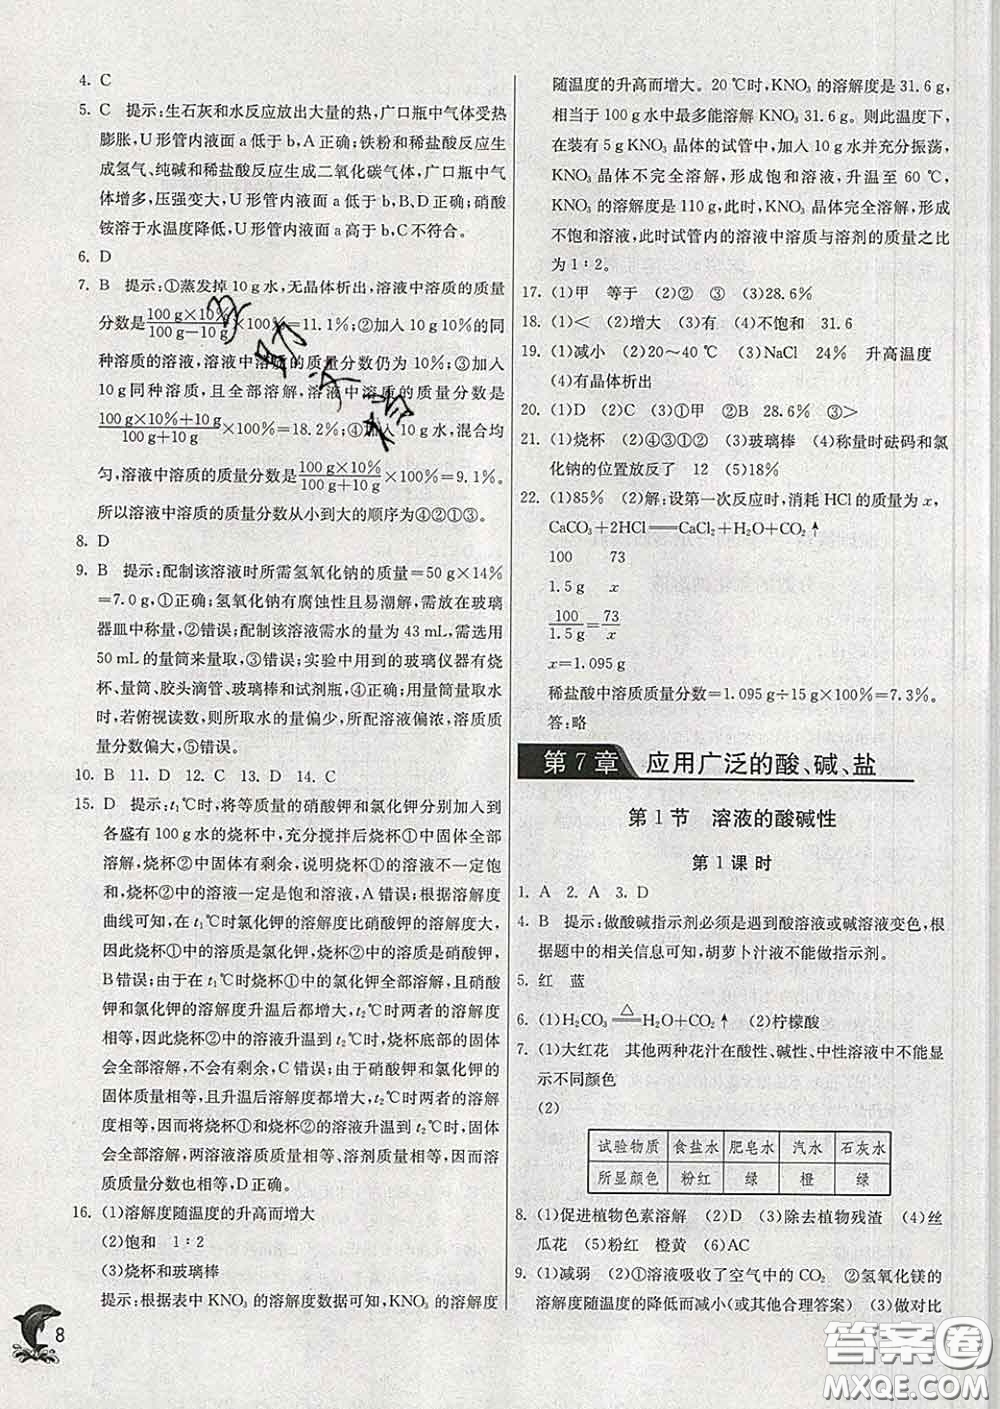 4. C
5. C 提示:生石灰和水反应放出大量的热,广口瓶中气体受热
膨胀,U形管内液面 a 低于 b,A正确;铁粉和稀盐酸反应生
成氢气、纯碱和稀盐酸反应生成二氧化碳气体,广口瓶中气
体增多,压强变大,U形管内液面 a 低于 b,B、D正确;硝酸
铵溶于水温度降低,U形管内液面 a 高于 b,C不符合。
6. D
7. B 提示:①蒸发掉 10 g 水,无晶体析出,溶液中溶质的质量
分数是 (100 g×10%)/(100 g−10 g)×100%=11.1%;②加入 10 g 10%的同
种溶质的溶液,溶液中溶质的质量分数仍为 10%;③加入
10 g 同种溶质,且全部溶解,溶液中溶质的质量分数是
(100 g×10%+10 g)/(100 g+10 g)×100%=18.2%;④加入 10 g 水,混合均
匀,溶液中溶质的质量分数是 (100 g×10%)/(100 g+10 g)×100%=9.1%。
所以溶液中溶质的质量分数从小到大的顺序为④②①③。
8. D
9. B 提示:配制该溶液时所需氢氧化钠的质量=50 g×14%
=7.0 g,①正确;氢氧化钠有腐蚀性且易潮解,需放在玻璃
器皿中称量,②错误;配制该溶液需水的量为 43 mL,需选用
50 mL 的量筒来量取,③错误;实验中用到的玻璃仪器有烧
杯、量筒、胶头滴管、玻璃棒和试剂瓶,④正确;用量筒量取水
时,若俯视读数,则所取水的量偏少,所配溶液偏浓,溶质质
量分数偏大,⑤错误。
10. B 11. D 12. C 13. D 14. C
15. D 提示:t₁℃时,将等质量的硝酸钾和氯化钾分别加入到
各盛有 100 g 水的烧杯中,充分搅拌后烧杯①中固体全部
溶解,烧杯②中固体有剩余,说明烧杯①的溶液不一定饱
和,烧杯②中的溶液一定是饱和溶液,A 错误;根据溶解度
曲线可知,在 t₁℃时氯化钾的溶解度比硝酸钾的溶解度大,
因此烧杯①中的溶质是氯化钾,烧杯②中的溶质是硝酸钾,
B 错误;由于在 t₁℃时烧杯①中氯化钾全部溶解,且硝酸
钾和氯化钾的溶解度升温后都增大,t₂℃时两者的溶解度
相等,因此烧杯②中的溶液升温到 t₂℃时,烧杯底部的固体
会全部溶解,不会有剩余,C 错误;由于硝酸钾和氯化钾的
固体质量相等,且升温后溶解度都增大,t₂℃时两者的溶解
度相等,因而将烧杯①和烧杯②的溶液升温到 t₂℃时,固体
会全部溶解,两溶液溶质质量相等、溶剂质量相等,因而溶
质质量分数也相等,D 正确。
16. (1)溶解度随温度的升高而增大
(2)饱和 1∶2
(3)烧杯和玻璃棒
提示:根据表中 KNO₃ 的溶解度数据可知,KNO₃ 的溶解度
8
随温度的升高而增大。20 ℃时,KNO₃ 的溶解度是 31.6 g,
相当于 100 g 水中最多能溶解 KNO₃ 31.6 g。则此温度下,
在装有 5 g KNO₃ 晶体的试管中,加入 10 g 水并充分振荡,
KNO₃ 晶体不完全溶解,形成饱和溶液,升温至 60 ℃,
KNO₃ 的溶解度是 110 g,此时,KNO₃ 晶体完全溶解,形成
不饱和溶液,此时试管内的溶液中溶质与溶剂的质量之比
为 1∶2。
17. (1)甲 等于 (2)② ③ (3)28.6%
18. (1)< (2)增大 (3)有 (4)不饱和 31.6
19. (1)减小 (2)20～40 ℃ (3)NaCl 24% 升高温度
(4)有晶体析出
20. (1)D (2)C (3)①甲 ②B 28.6% ③>
21. (1)烧杯 (2)④③①② (3)玻璃棒 (4)称量时砝码和氯
化钠的位置放反了 12 (5)18%
22. (1)85% (2)解:设第一次反应时,消耗 HCl 的质量为 x,
CaCO₃+2HCl══CaCl₂+H₂O+CO₂↑
100 73
1.5 g x
100/1.5 g=73/x
x=1.095 g
稀盐酸中溶质质量分数=1.095 g÷15 g×100%=7.3%。
答:略
第 7 章 应用广泛的酸、碱、盐
第 1 节 溶液的酸碱性
第 1 课时
1. A 2. A 3. D
4. B 提示:做酸碱指示剂必须是遇到酸溶液或碱溶液变色,根
据题中的相关信息可知,胡萝卜汁液不能做指示剂。
5. 红 蓝
6. (1)H₂CO₃ =△= H₂O+CO₂↑ (2)柠檬酸
7. (1)大红花 其他两种花汁在酸性、碱性、中性溶液中不能显
示不同颜色
(2)
试验物质 食盐水 肥皂水 汽水 石灰水
所显颜色 粉红 绿 橙 绿
8. (1)促进植物色素溶解 (2)D (3)除去植物残渣 (4)丝
瓜花 (5)粉红 橙黄 (6)AC
9. (1)减弱 (2)①溶液吸收了空气中的 CO₂ ②氢氧化镁的
溶解度随温度的降低而减小(或其他合理答案) (3)做对比
答案圈
MXQE.COM